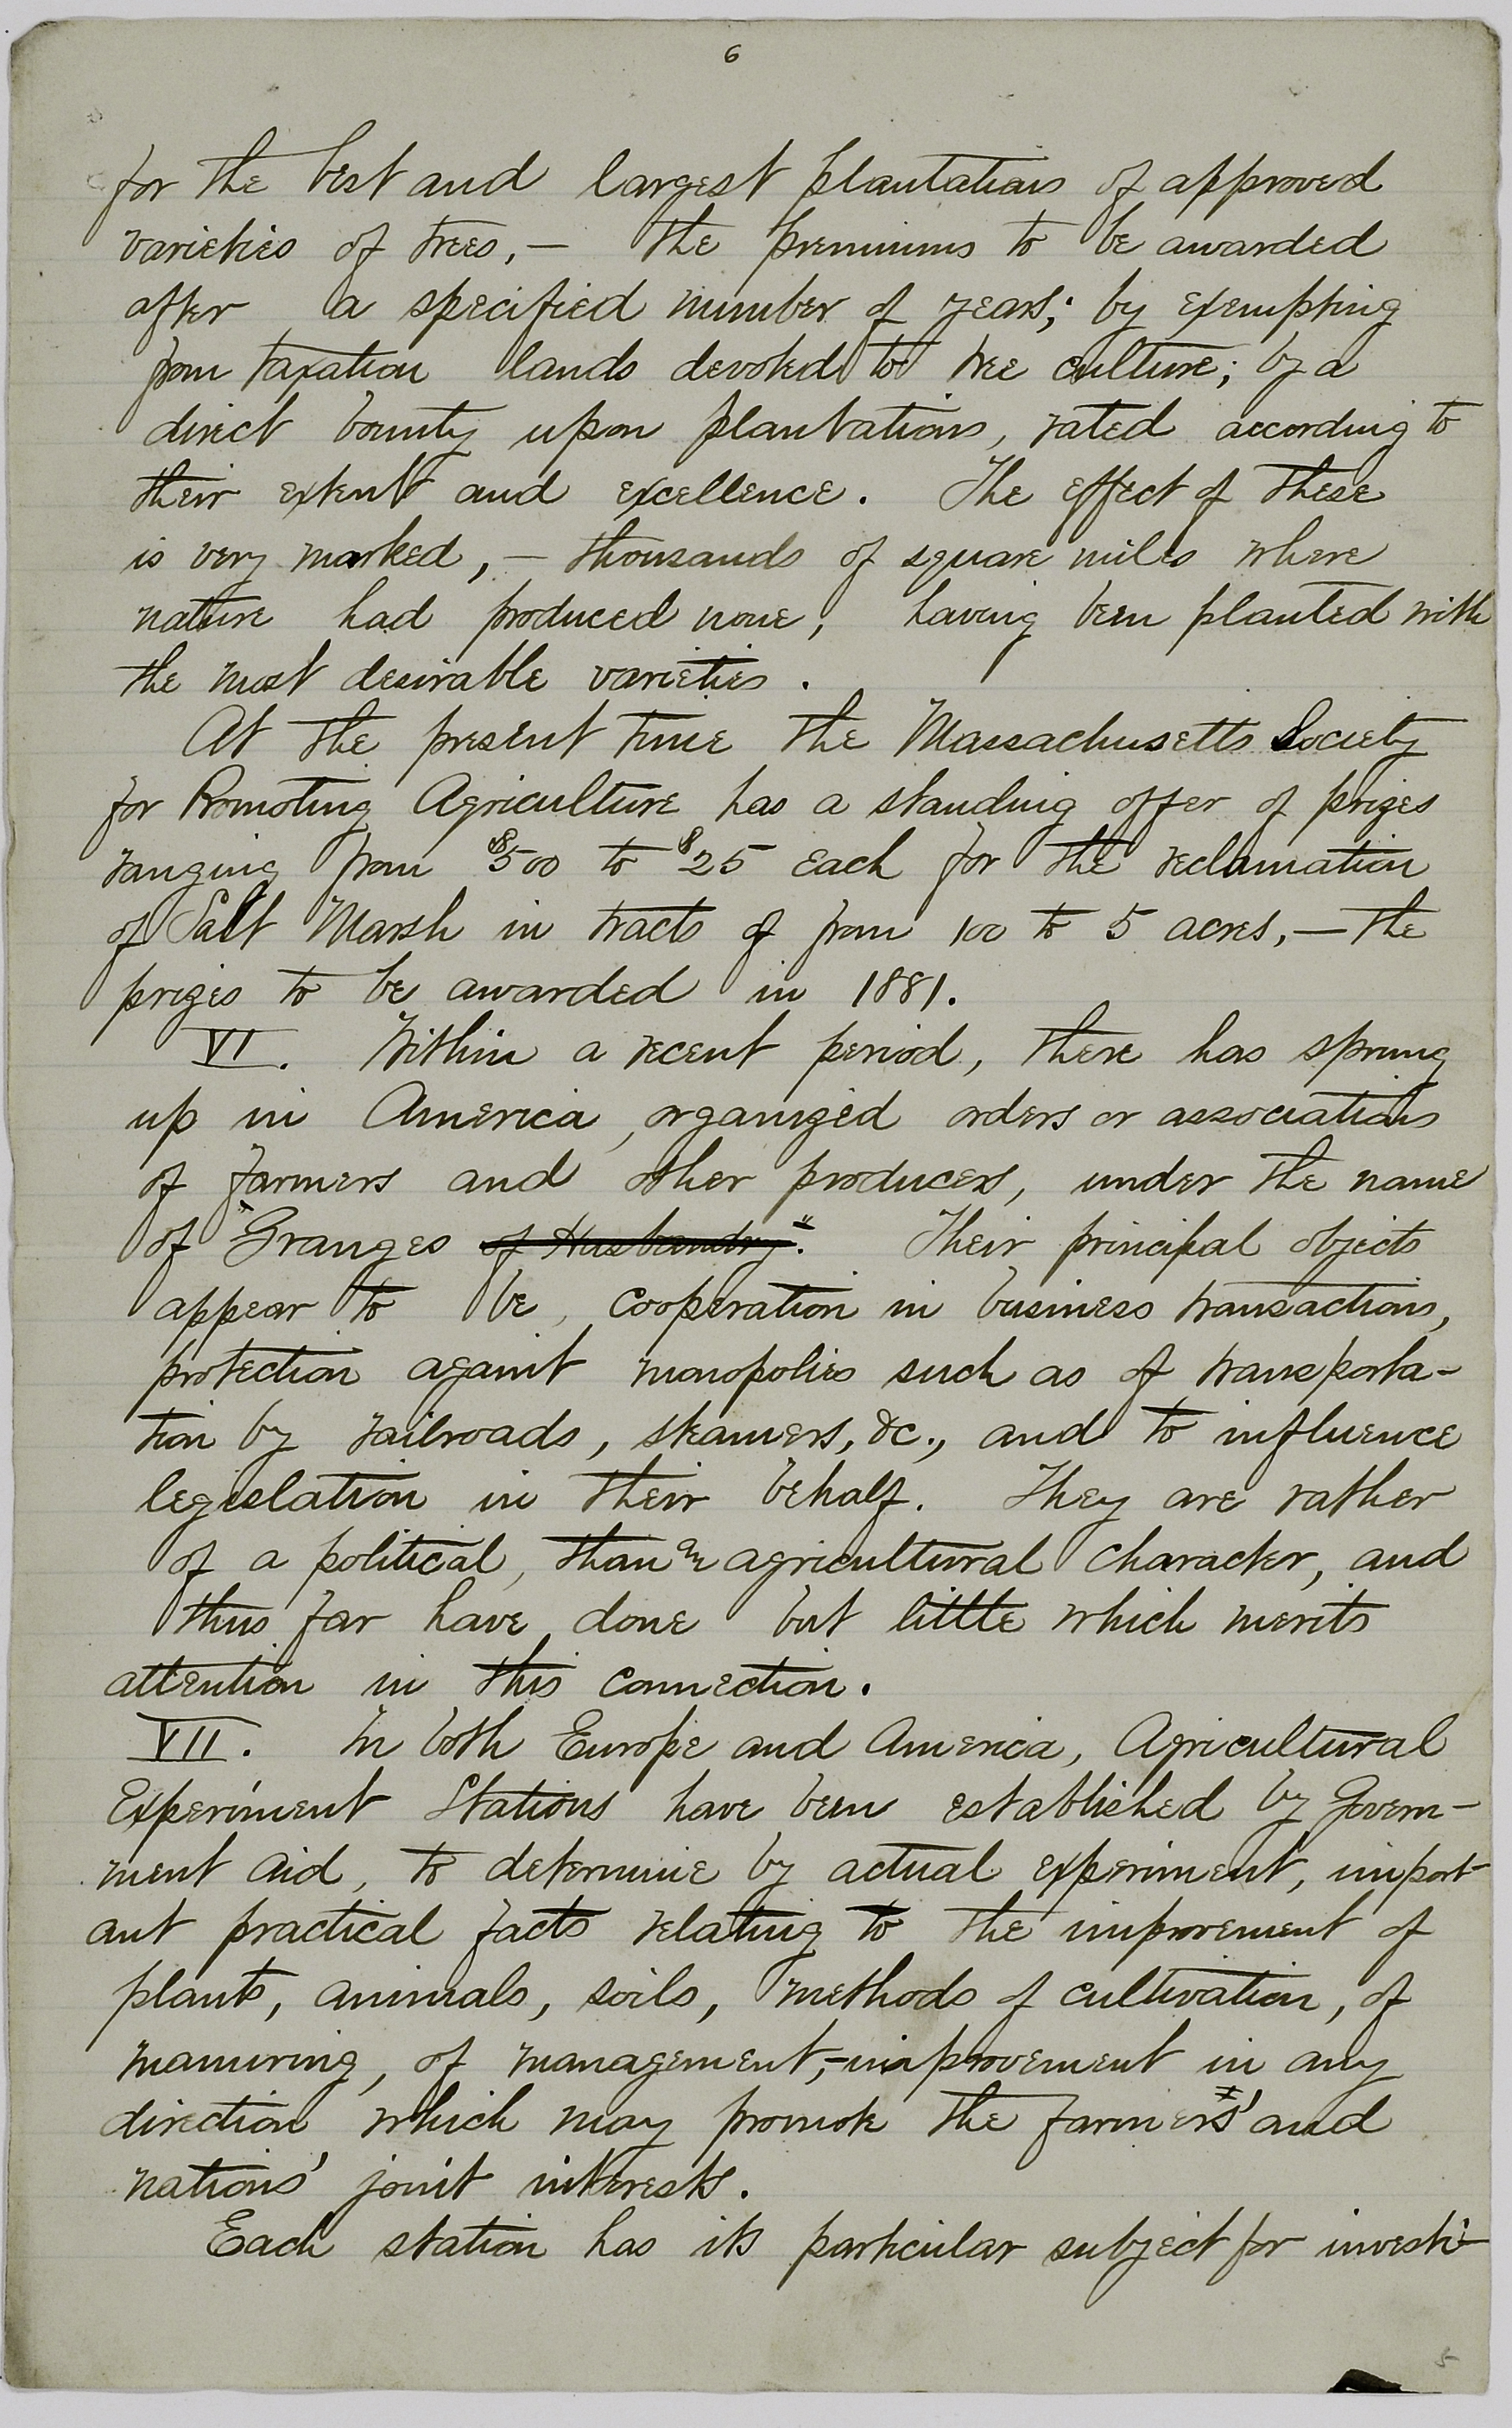 6
for the best and largest plantations of approved
varieties of trees, — the premiums to be awarded
after a specified number of years; by exempting
from taxation lands devoted to tree culture; by a
direct bounty upon plantations, rated according to
their extent and excellence. The effect of these
is very marked, — thousands of square miles where
nature had produced none, having been planted with
the most desirable varieties.
At the present time the Massachusetts Society
for Promoting Agriculture has a standing offer of prizes
ranging from $500 to $25 each for the reclamation
of Salt Marsh in tracts of from 100 to 5 acres, — the
prizes to be awarded in 1881.
VI. Within a recent period, there has sprung
up in America, organized orders or associations
of farmers and other producers, under the name
of "Granges of Husbandry." Their principal objects
appear to be, cooperation in business transactions,
protection against monopolies such as of transporta-
tion by railroads, steamers, &c., and to influence
legislation in their behalf. They are rather
of a political, than an agricultural character, and
thus far have done but little which merits
attention in this connection.
VII. In both Europe and America, Agricultural
Experiment Stations have been established by Govern-
ment aid, to determine by actual experiment, import-
ant practical facts relating to the improvement of
plants, animals, soils, methods of cultivation, of
manuring, of management, — improvement in any
direction which may promote the farmers' and
nations' joint interests.
Each station has its particular subject for investi-
5